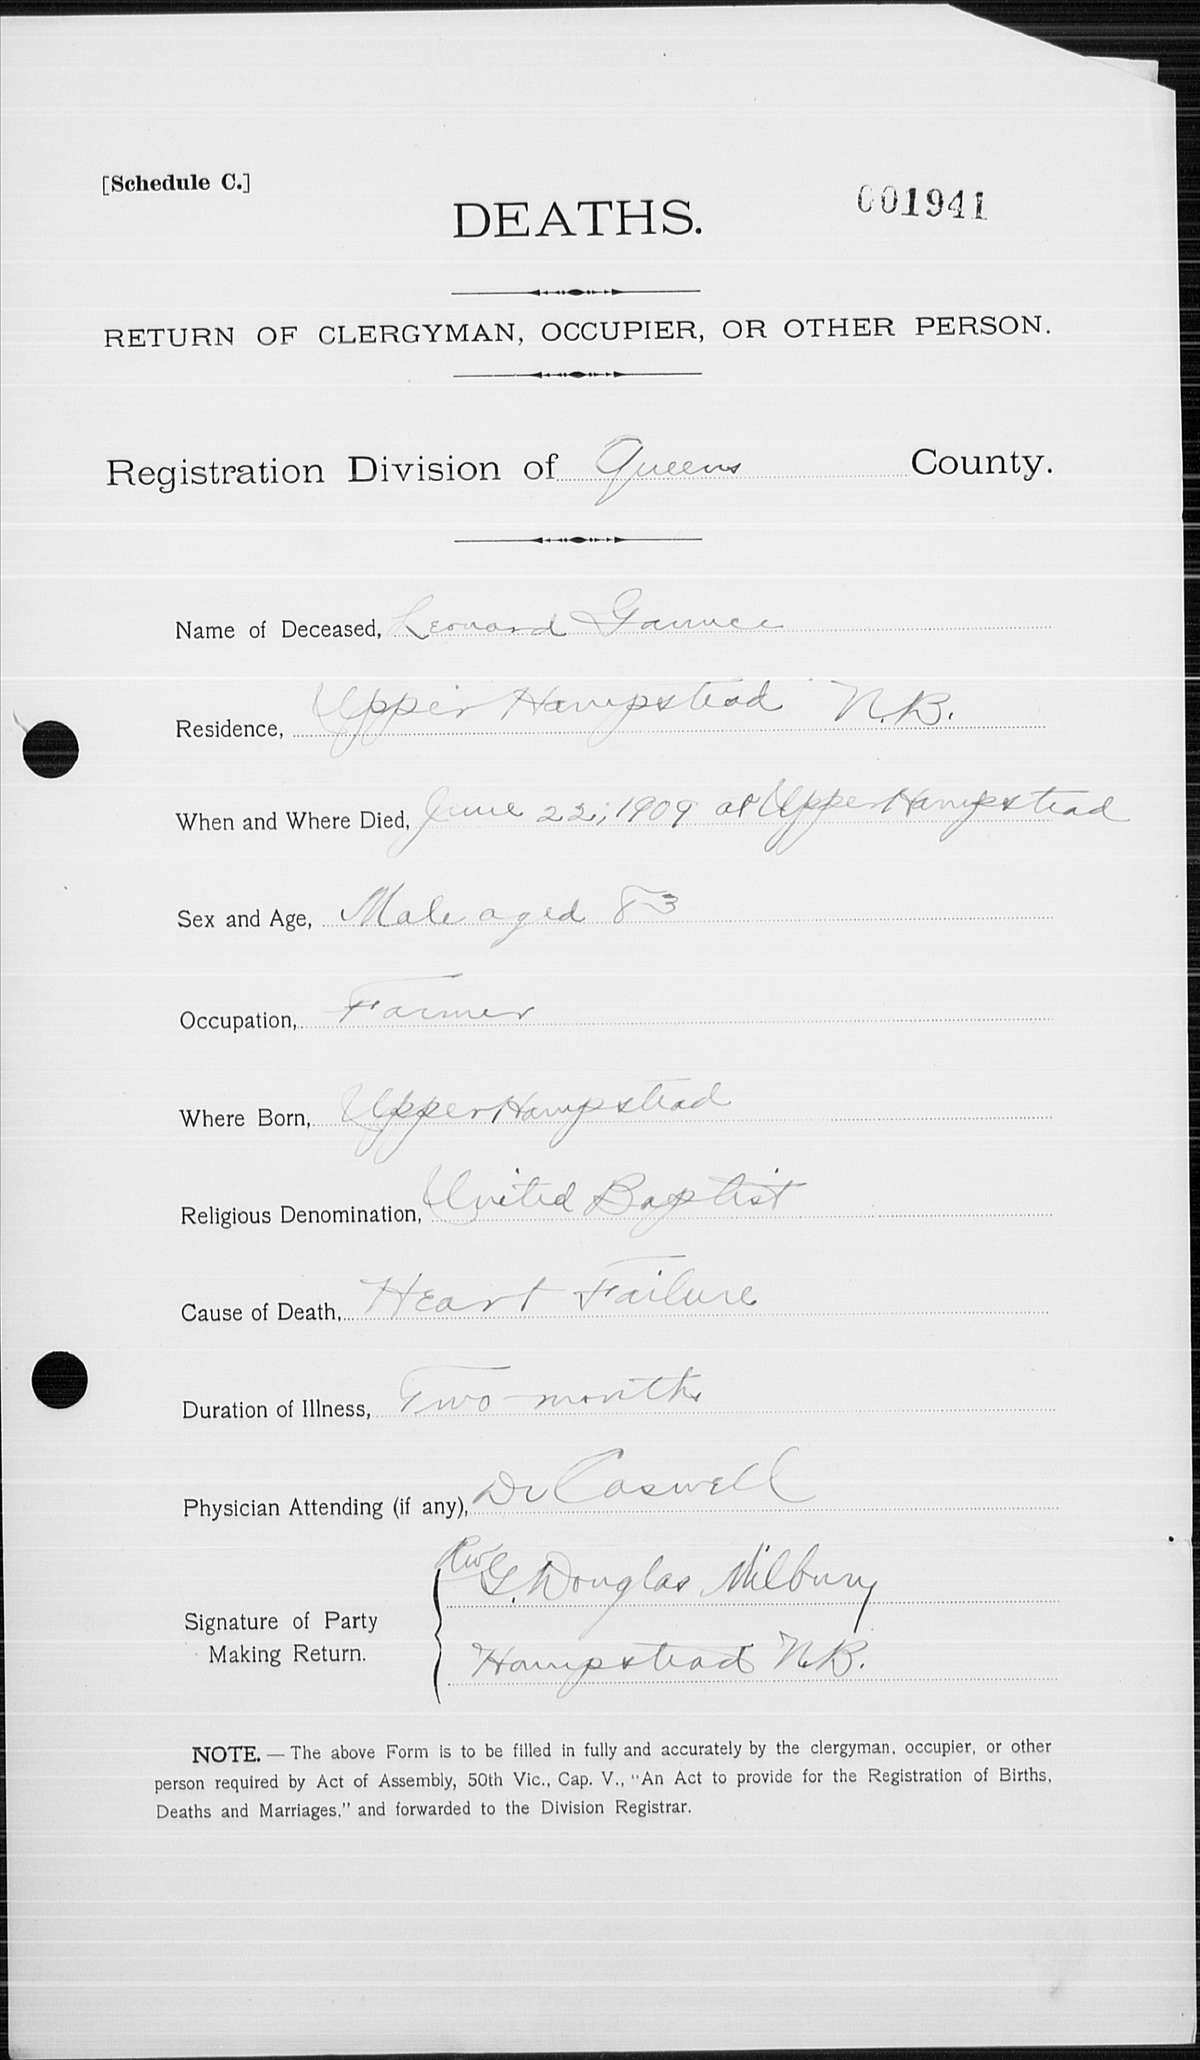 [Schedule C.]
DEATHS.
001941
RETURN OF CLERGYMAN, OCCUPIER, OR OTHER PERSON.
Registration Division of Queens County.
Name of Deceased, Leonard
Residence, Upper Hampstead N.B.
When and Where Died, June 22, 1909 at Upper Hampstead
Sex and Age, Male aged 83
Occupation, Farmer
Where Born, Upper Hampstead
Religious Denomination, United Baptist
Cause of Death, Heart Failure
Duration of Illness, Two months
Physician Attending (if any), Dr Caswell
Rev G. Douglas Milbury
Signature of Party
Making Return.
Hampstead N.B.
NOTE. — The above Form is to be filled in fully and accurately by the clergyman, occupier, or other
person required by Act of Assembly, 50th Vic., Cap. V., "An Act to provide for the Registration of Births,
Deaths and Marriages," and forwarded to the Division Registrar.